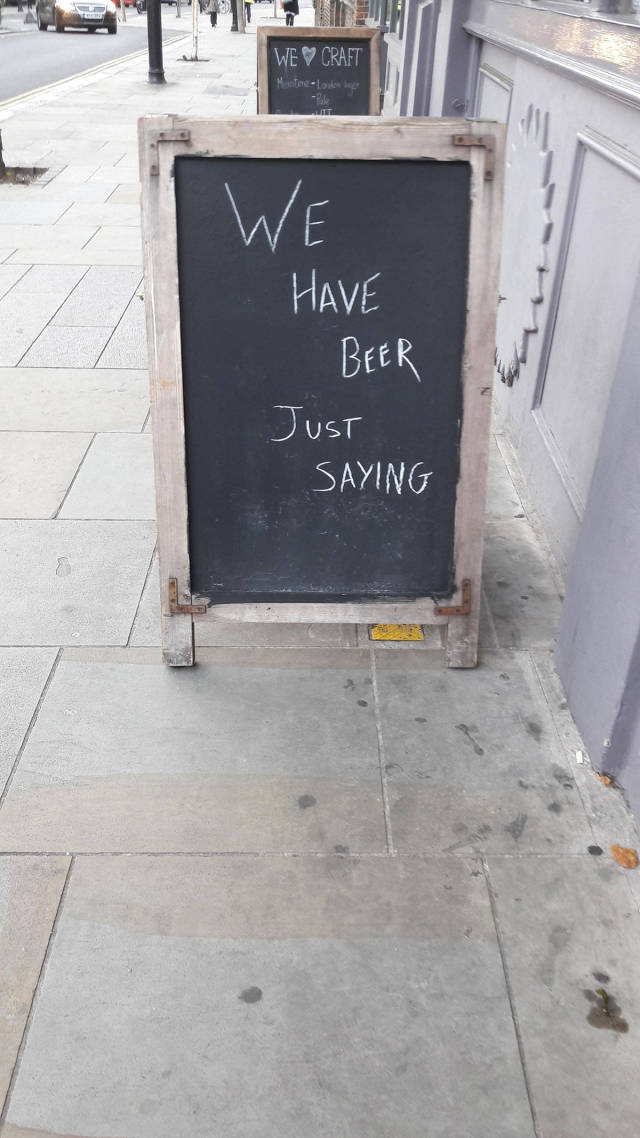 WE ♥ CRAFT
Meantime - London lager
- Pale
WE
HAVE
BEER
JUST
SAYING